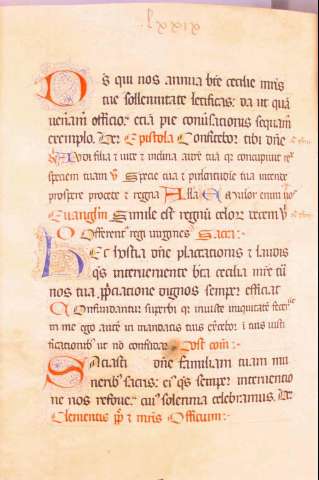 Ds qui nos annua bte cecilie mris
tue sollennitate letificas: da ut quā
ueneram̄ officio: etiā pie conuersationis sequam̄
exemplo. Per Epistola Confitebor tibi dn̄e
Audi filia et uide et inclina aurē tuā qr concupiuit rex
speciem tuam V Specie tua et pulcritudine tua intende
prospere procede et regna Alla
Euangliu Simile est regnū celor decem v
Offerent regi uirgines Secreta
Hec hostia dn̄e placationis et laudis
qs interueniente bta cecilia mre tū
nos tua ppiciatione dignos semper efficiat
Confundantur superbi qr iniuste iniquitatē fecer
in me ego autē in mandatis tuis exercebor i tuis iusti
ficationibus ut nō confundar Post com
Saciasti dn̄e familiam tuam mu
neribus sacris: eius qs semper interuentio
ne nos refoue: cuius solennia celebramus. Per
Clementis pp et mris Officium